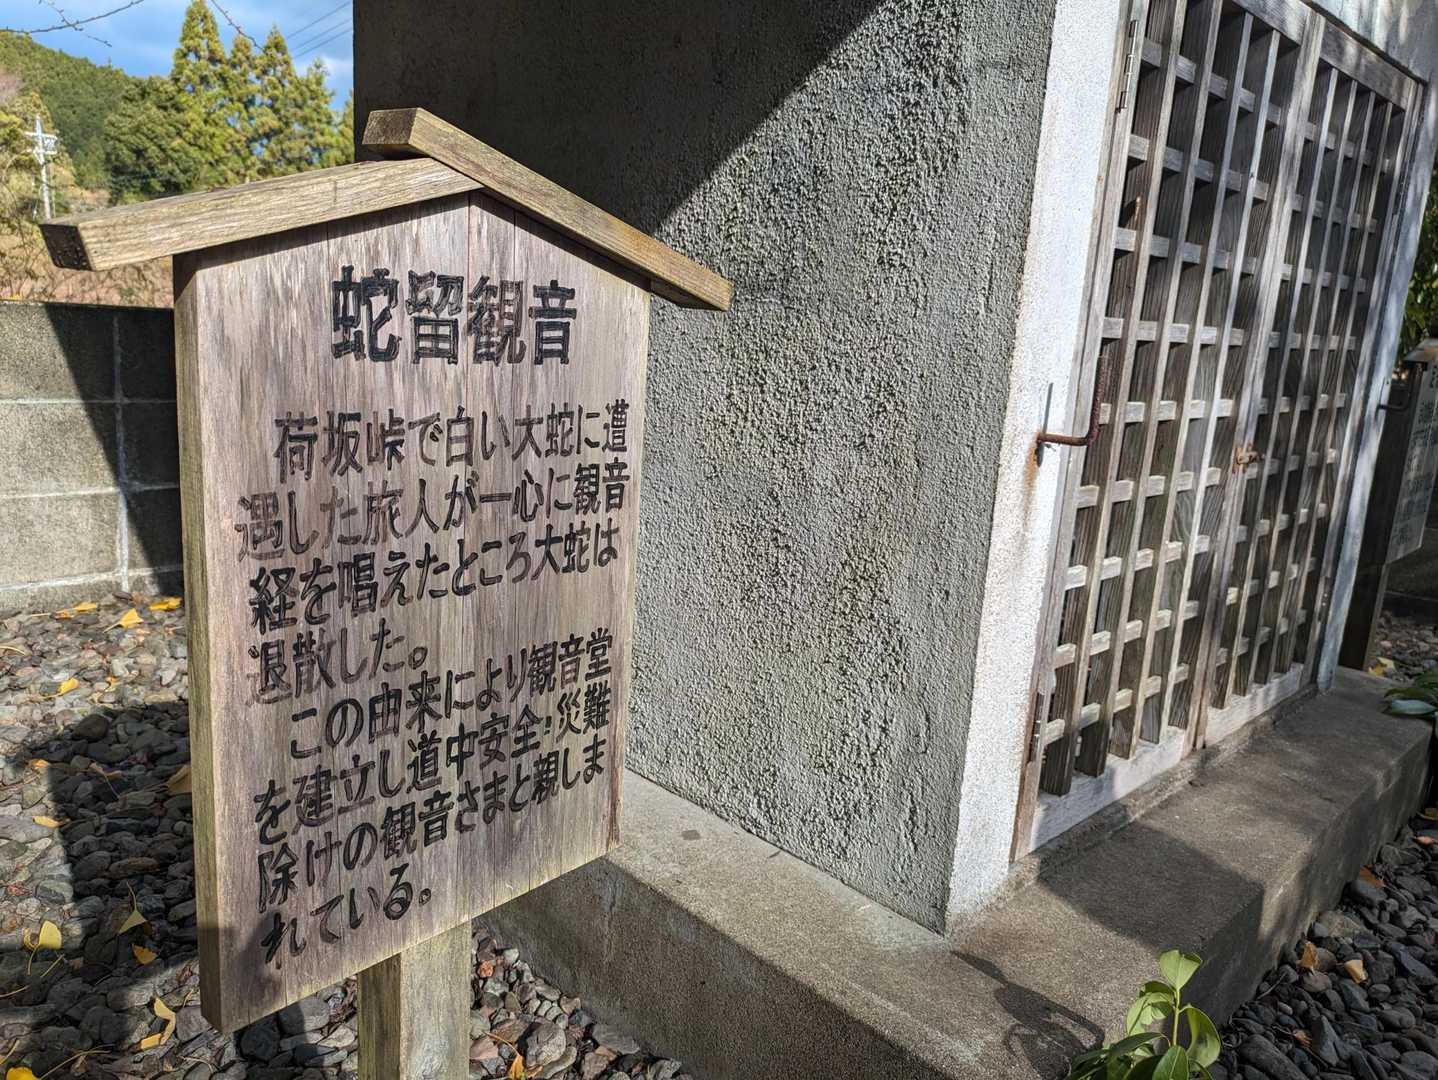 蛇留観音
荷坂峠で白い大蛇に遭
遇した旅人が一心に観音
経を唱えたところ大蛇は
退散した。
この由来により観音堂
を建立し道中安全!災難
除けの観音さまと親しま
れている。